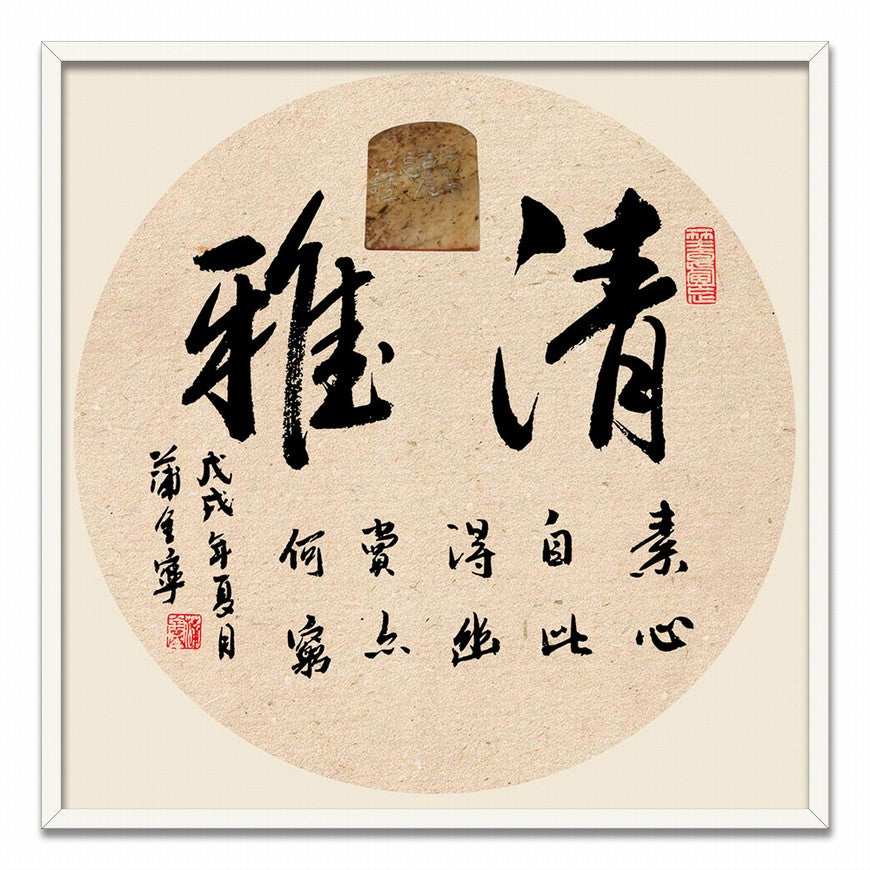 清雅
素心
自此
得幽
賞亦
何窮
戊戌年夏月
蒲全寧